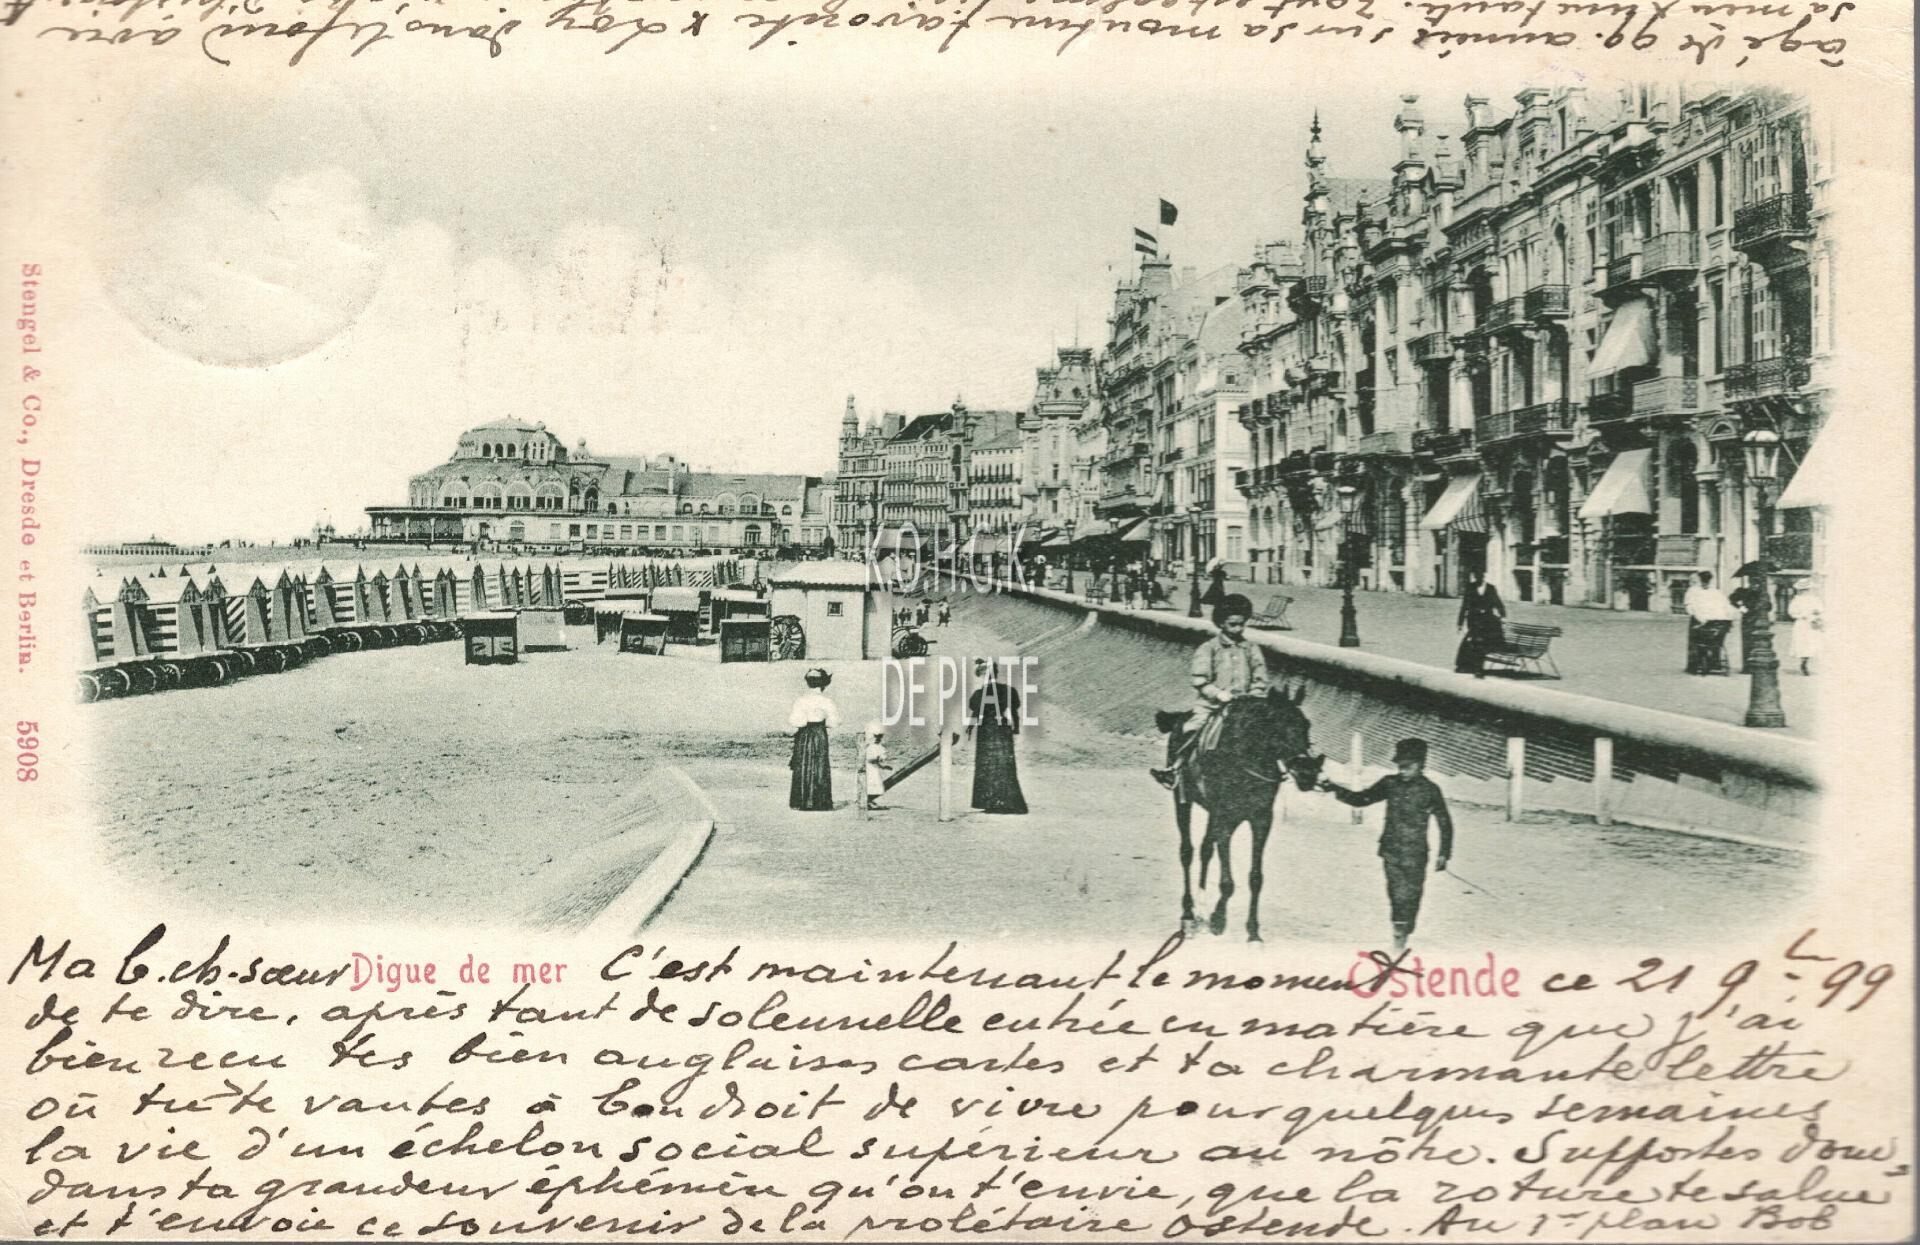 Ma b. ch. sœur Digue de mer C'est maintenant le moment Ostende ce 21 9<sup>b</sup> 99
de te dire, après tant de solennelle entrée en matière que j'ai
bien reçu tes bien anglaises cartes et ta charmante lettre
où tu te vantes à bon droit de vivre pour quelques semaines
la vie d'un échelon social supérieur au nôtre. Supportes donc
dans ta grandeur éphémère qu'on t'envie, que la roture te salue
et t'envoie ce souvenir de la prolétaire Ostende. Au 1<sup>er</sup> plan Bob
âgé de 99. années sur sa monture favorite x Loy dans le fond avec
sa tante. Tout
Stengel & Co., Dresde et Berlin. 5908
KO.H.G.K
DE PLATE